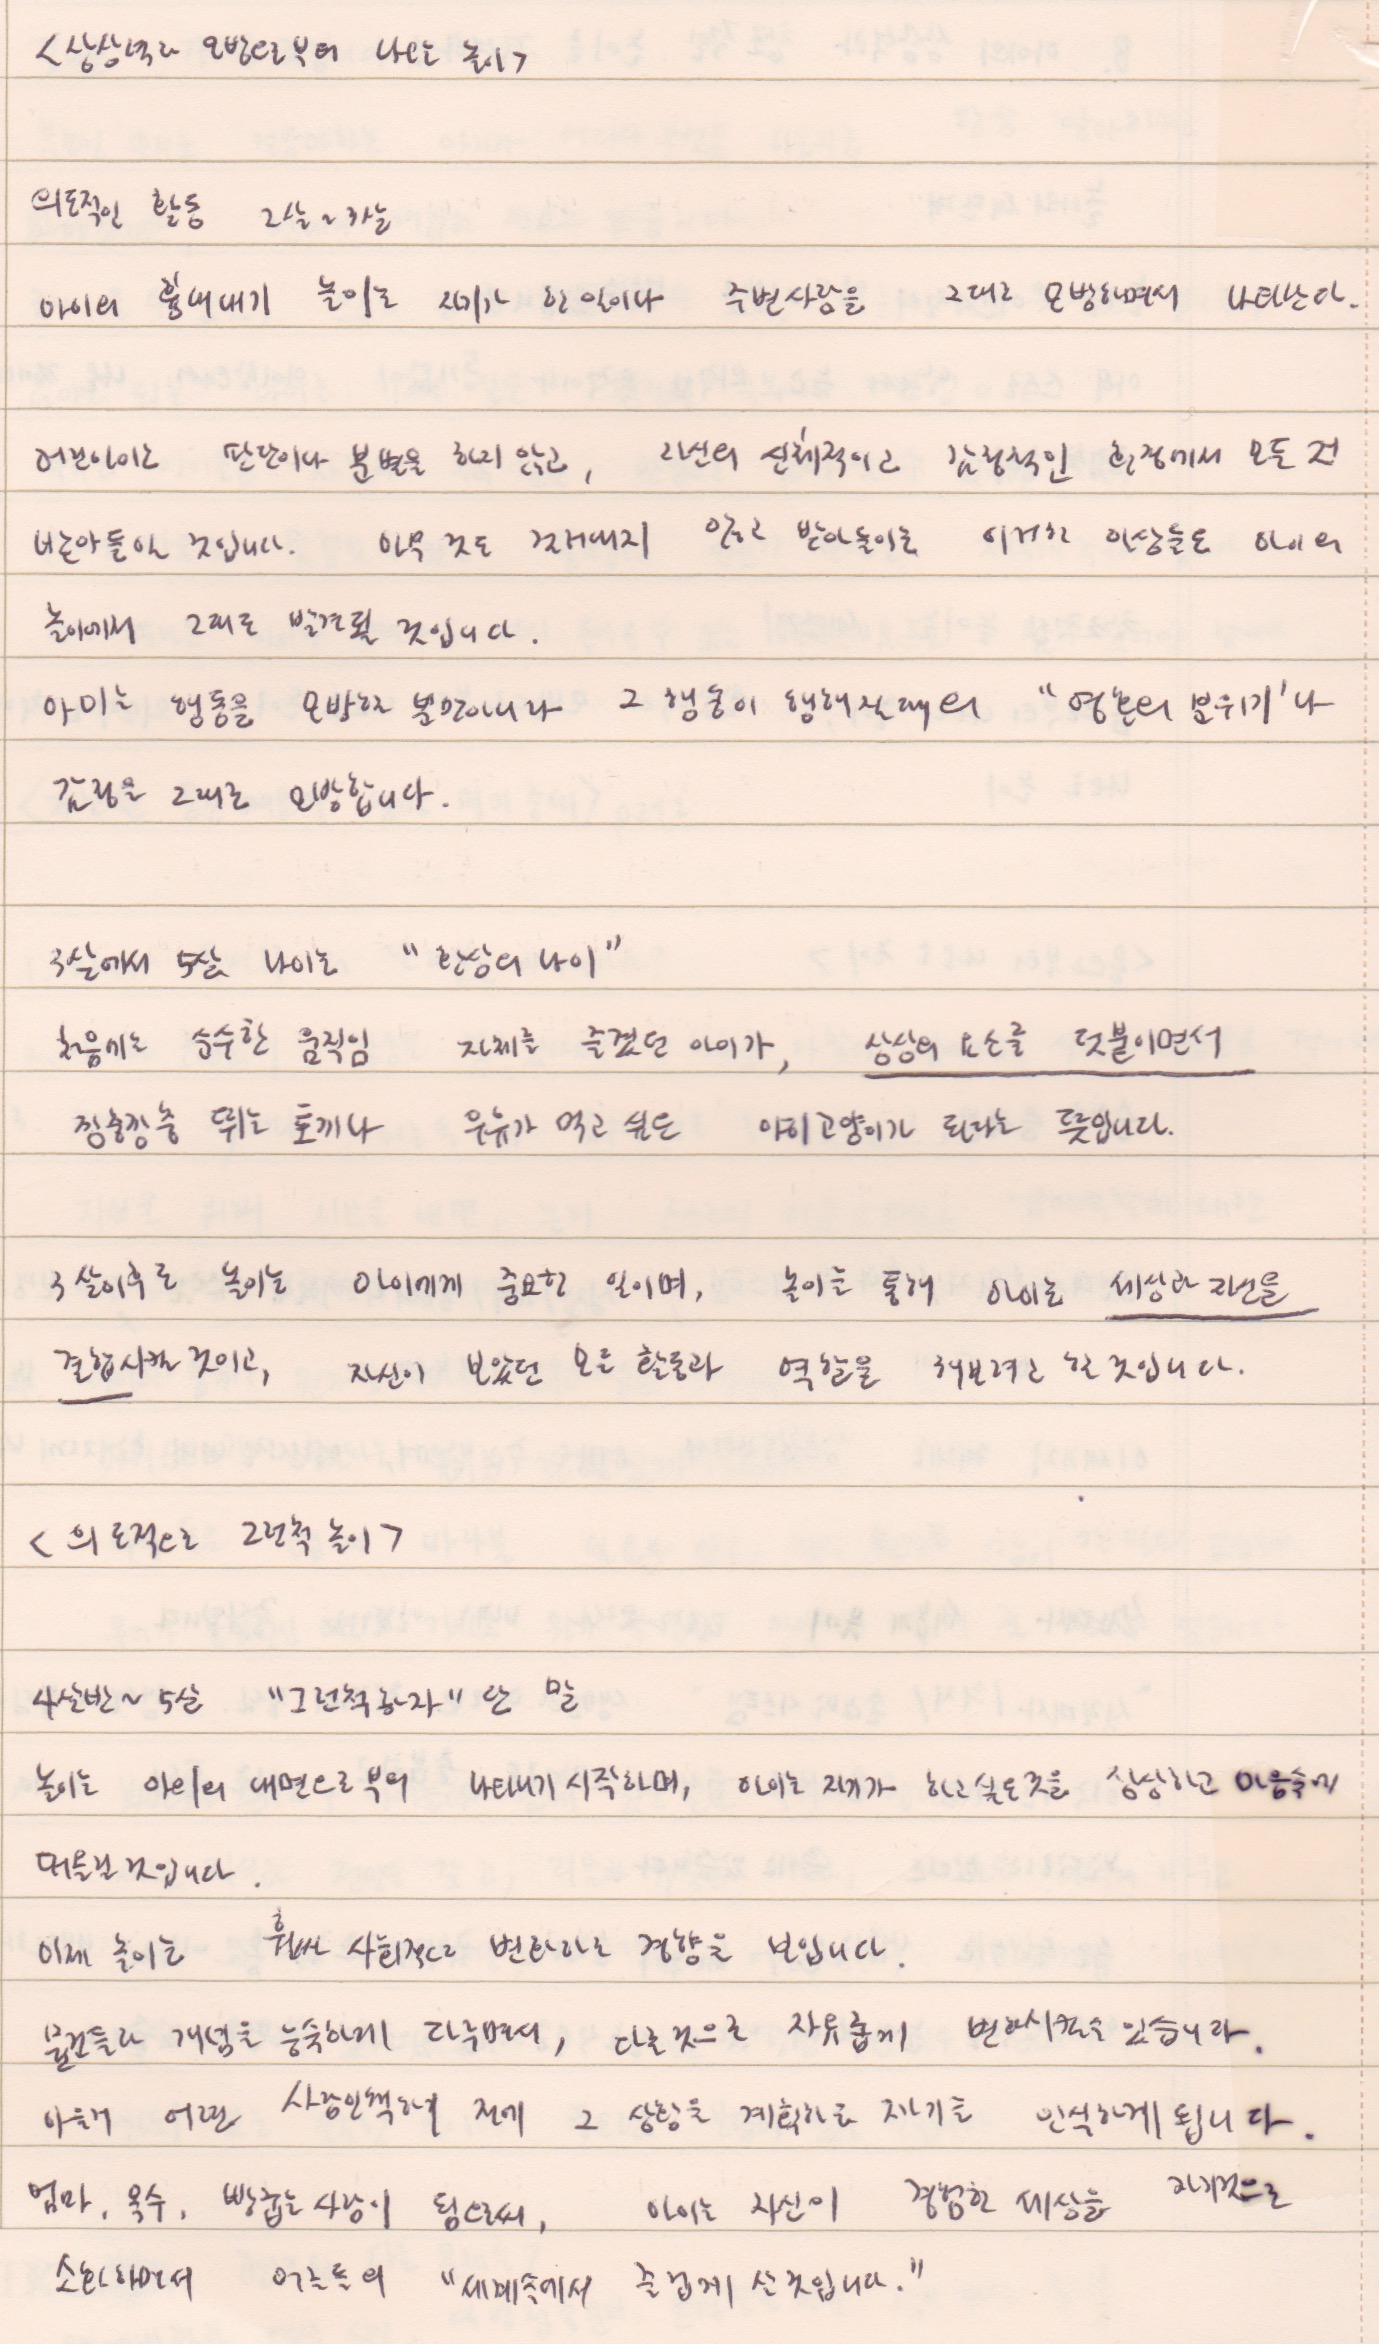 <상상력과 모방으로부터 나오는 놀이>
의도적인 활동 2살~3살
아이의 흉내내기 놀이는 자기가 한 일이나 주변사람을 그대로 모방하면서 나타난다.
어린아이는 판단이나 분별을 하지 않고, 자신의 신체적이고 감정적인 환경에서 모든 것
받아들일 것입니다. 아무 것도 걸러내지 않고 받아들이는 이러한 인상들도 아이의
놀이에서 그대로 발견될 것입니다.
아이는 행동을 모방할 뿐만아니라 그 행동이 행해질때의 "영혼의 분위기'나
감정을 그대로 모방합니다.
3살에서 5살 나이는 "환상의 나이"
처음에는 순수한 움직임 자체를 즐겼던 아이가, 상상의 요소를 덧붙이면서
깡충깡충 뛰는 토끼나 우유가 먹고 싶은 아기고양이가 된다는 뜻입니다.
3살이후로 놀이는 아이에게 중요한 일이며, 놀이를 통해 아이는 세상과 자신을
결합시킬 것이고, 자신이 보았던 모든 활동과 역할을 해보려고 할 것입니다.
<의도적으로 그런척 놀이>
4살반~5살 "그런척하자" 란 말
놀이는 아이의 내면으로부터 나타내기 시작하며, 아이는 자기가 하고싶은것을 상상하고 마음속에
떠올릴 것입니다.
이제 놀이는 훨씬 사회적으로 변화하는 경향을 보입니다.
물건들과 개념을 능숙하게 다루면서, 다른것으로 자유롭게 변화시킬수 있습니다.
아울러 어떤 사람인척하기 전에 그 상황을 계획하는 자기를 인식하게 됩니다.
엄마, 목수, 빵굽는 사람이 됨으로써, 아이는 자신이 경험한 세상을 자기것으로
소화하면서 어른들의 "세계속에서 즐겁게 살 것입니다."